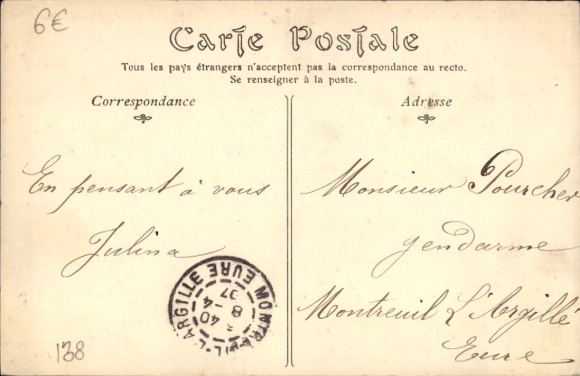 6€
Carte Postale
Tous les pays étrangers n'acceptent pas la correspondance au recto.
Se renseigner à la poste.
Correspondance
Adresse
En pensant à vous
Julina
Monsieur Pourcher
gendarme
Montreuil L'Argillé
Eure
MONTREUIL-L'ARGILLE EURE
40
8 -4
07
138